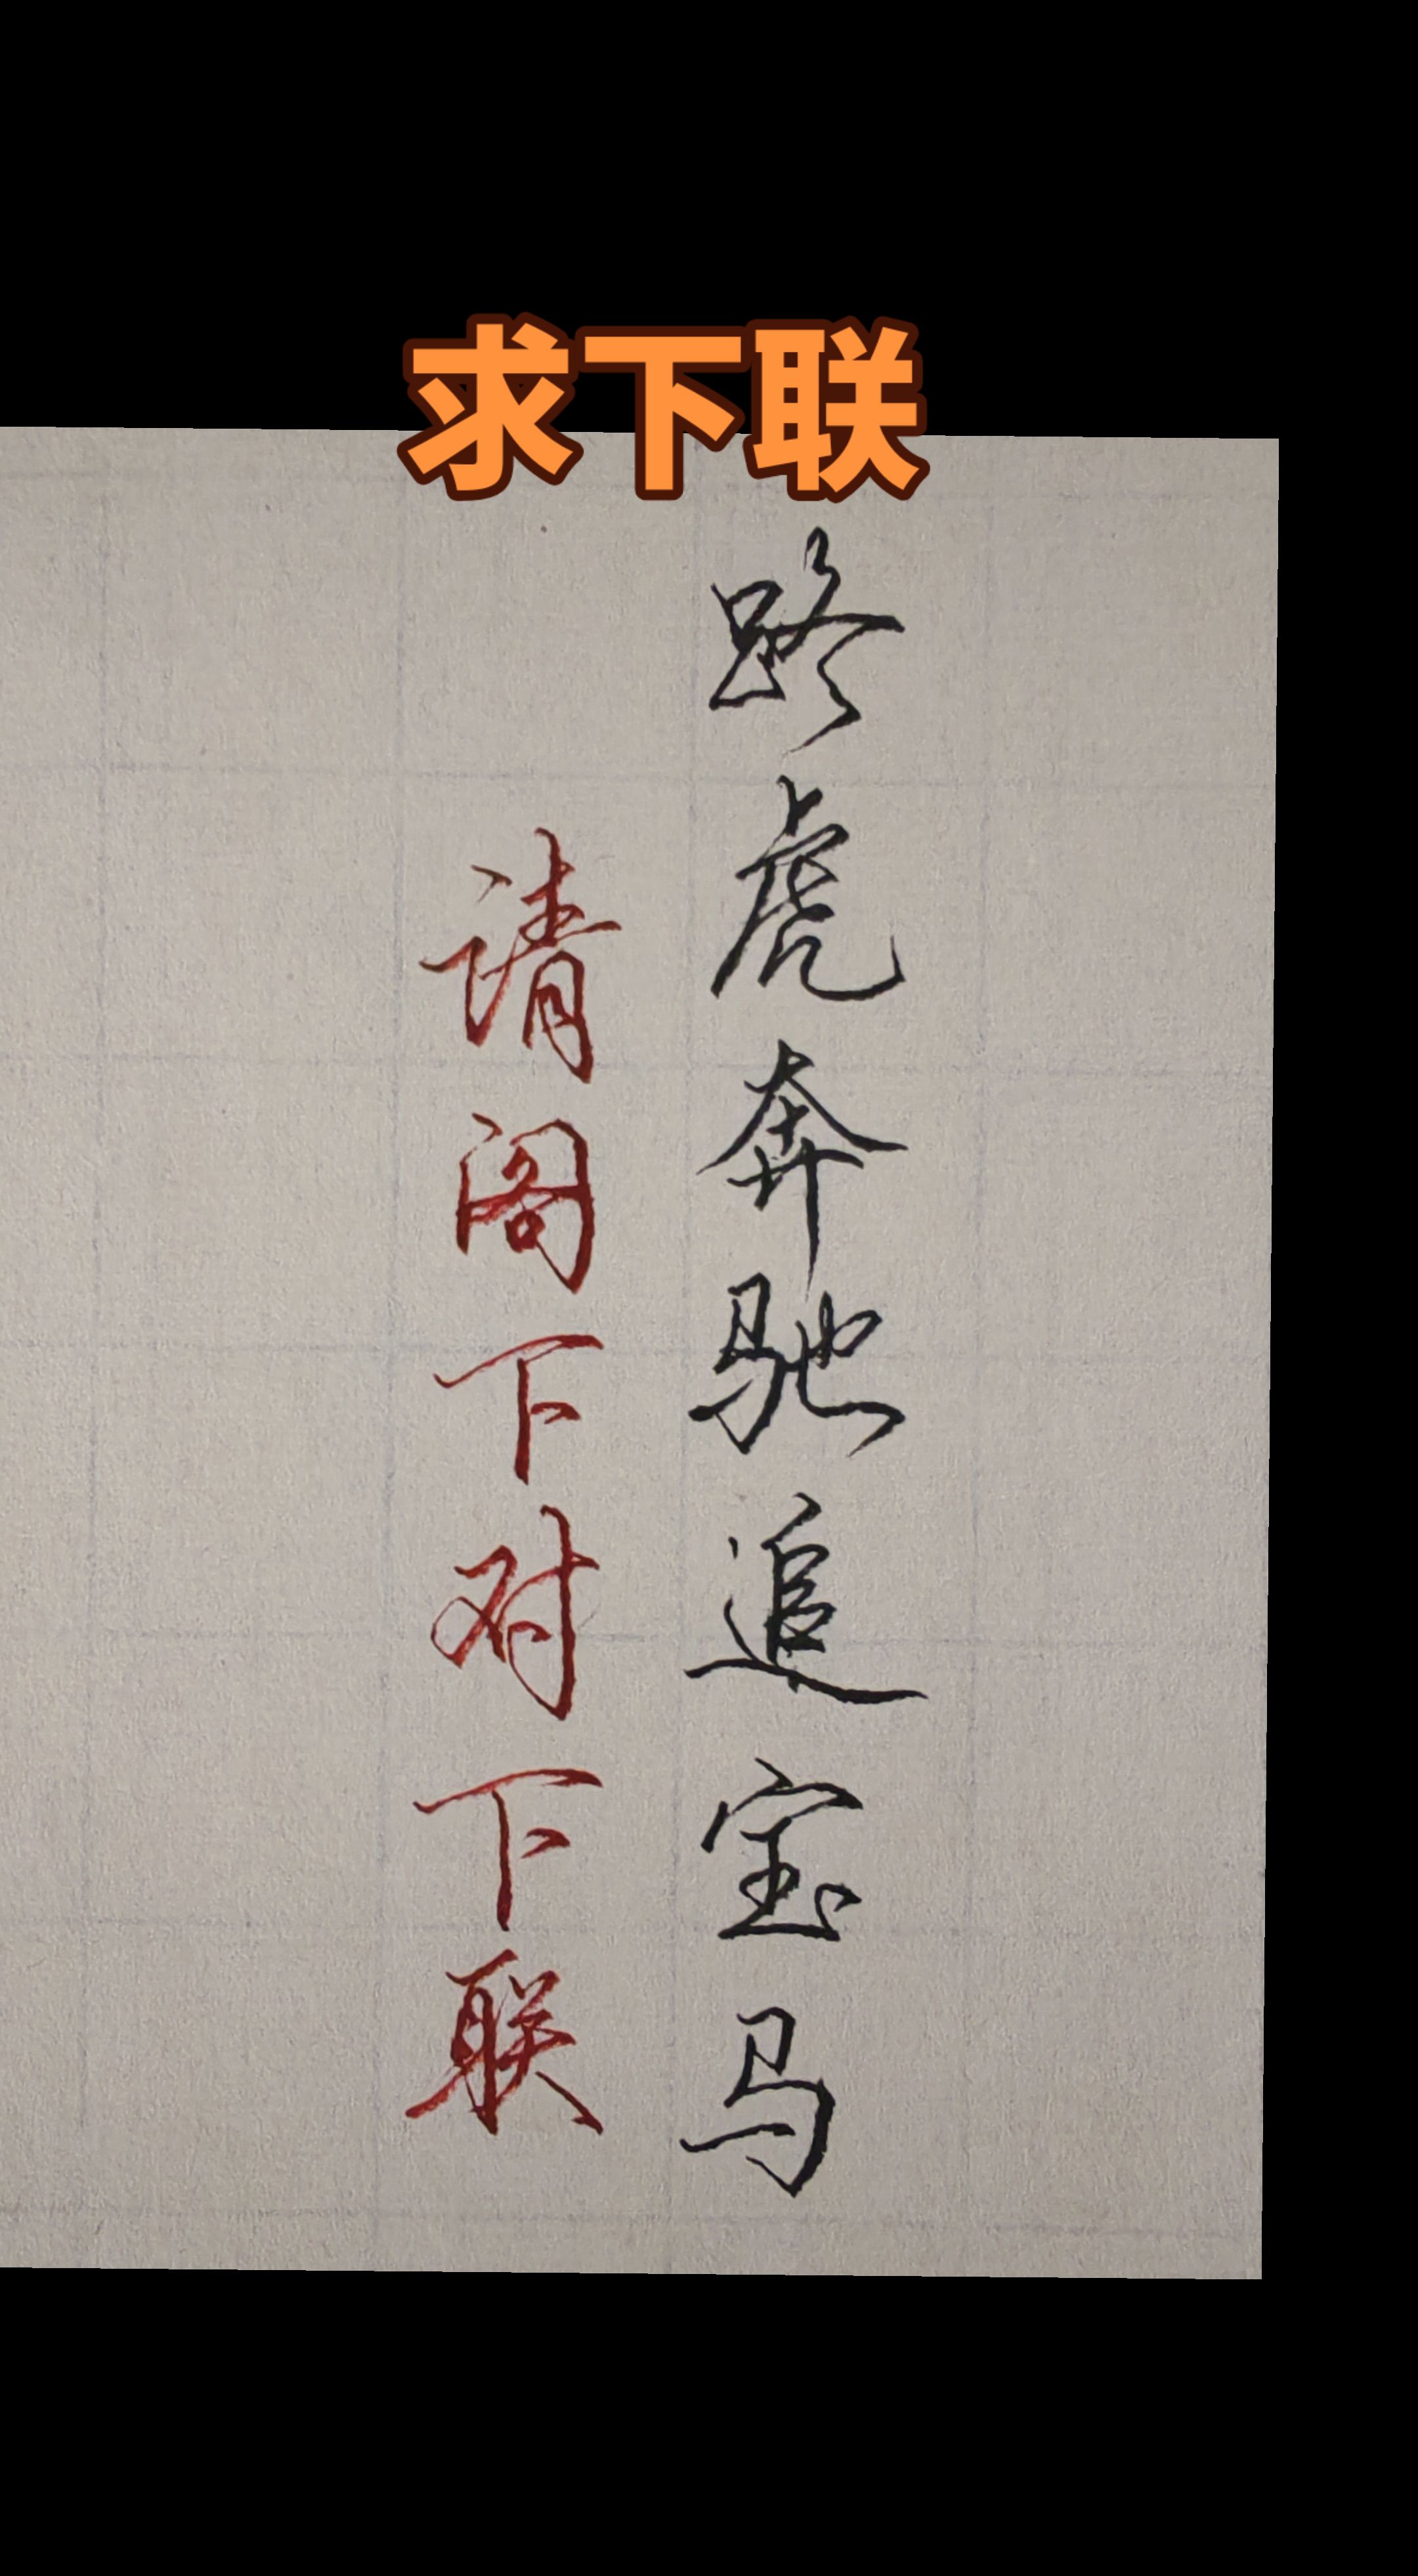 求下联
路虎奔驰追宝马
请阁下对下联